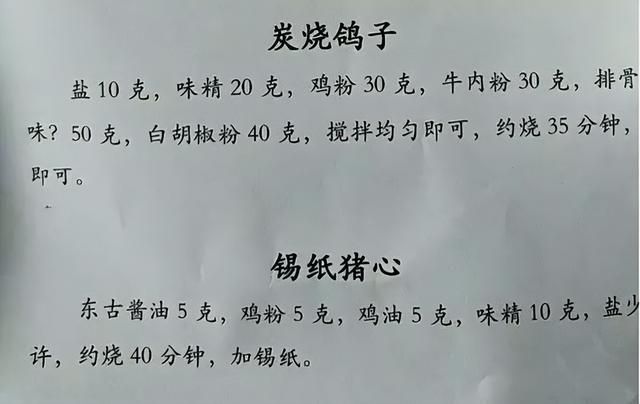 炭烧鸽子
盐 10 克，味精 20 克，鸡粉 30 克，牛内粉 30 克，排骨
味？50 克，白胡椒粉 40 克，搅拌均匀即可，约烧 35 分钟，
即可。
锡纸猪心
东古酱油 5 克，鸡粉 5 克，鸡油 5 克，味精 10 克，盐少
许，约烧 40 分钟，加锡纸。